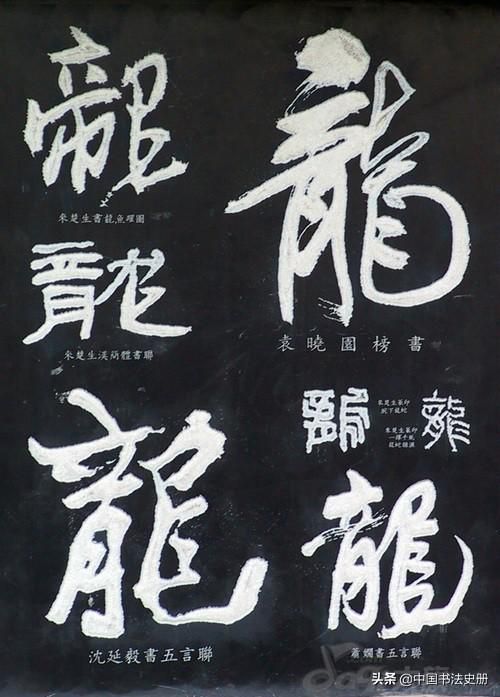 龍
來楚生書龍魚躍圖
龍
來楚生漢簡體書聯
龍
沈延毅書五言聯
龍
袁曉園榜書
龍
來楚生篆印
腕下龍蛇
龍
來楚生篆印
一擇千風
龍蛇糾混
龍
蕭嫻書五言聯
头条 @中国书法史册